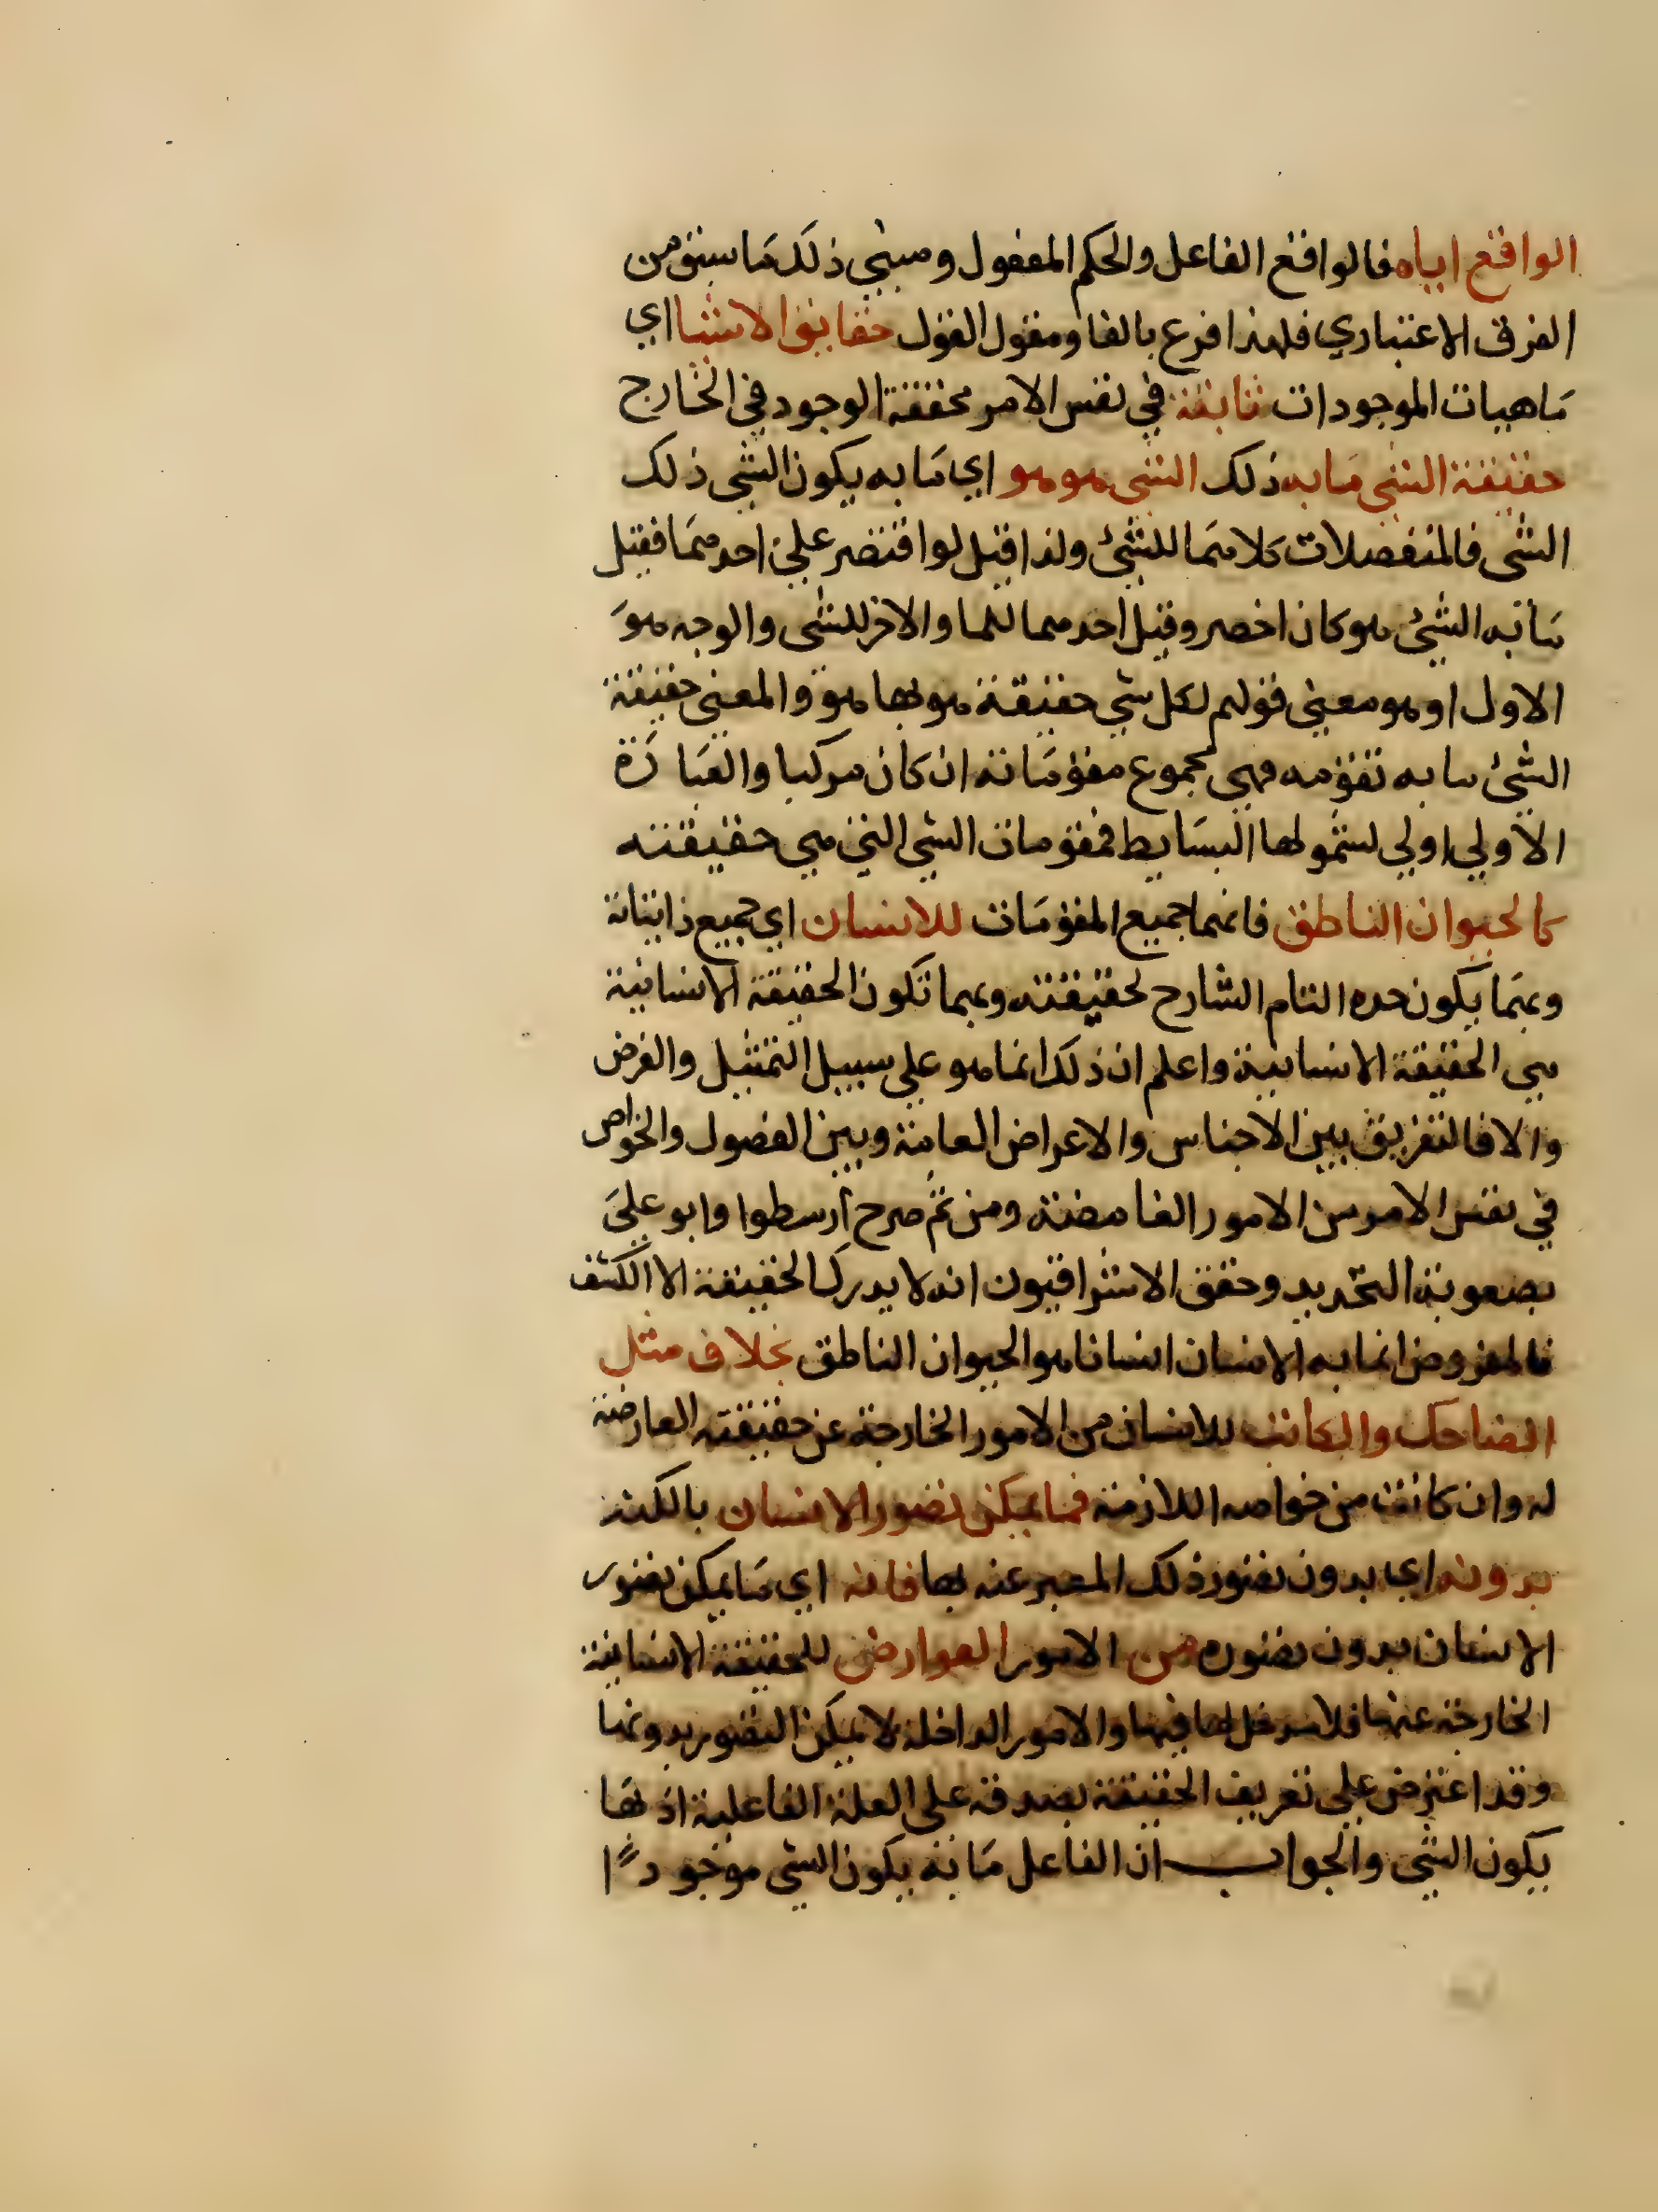 الواقع اياه فالواقع الفاعل والحكم المفعول ومبني ذلك ما سبق من
الفرق الاعتباري فلهذا فرع بالفا ومقول القول حقايق الاشيا اي
ماهيات الموجودات ثابتة في نفس الامر محققة الوجود في الخارج
حقيقة الشي ما به ذلك الشي هو هو اي ما به يكون الشي ذلك
الشي فالمنفصلات كلاهما للشئ ولذا قيل لو اقتصر على احدهما فقيل
ما به الشئ هو كان اخصر وقيل احدهما لما والاخر للشي والوجه هو
الاول او هو معني قولهم لكل شي حقيقة هو بها هو والمعني حقيقة
الشئ ما به تقومه فهي مجموع مقوماته ان كان مركبا والعبارة
الاولي اولي لشمولها البسايط فمقومات الشي التي هي حقيقته
كالحيوان الناطق فانهما جميع المقومات للانسان اي جميع ذاتياته
وبهما يكون حده التام الشارح لحقيقته وبهما تكون الحقيقة الانسانية
هي الحقيقة الانسانية واعلم ان ذلك انما هو علي سبيل التمثيل والفرض
والا فالتفريق بين الاجناس والاعراض العامة وبين الفصول والخواص
في نفس الامر من الامور الغامضة ومن ثم صرح ارسطوا وابو علي
بصعوبة التحديد وحقق الاشراقيون انه لا يدرك الحقيقة الا الكشف
فالمفروض انما به الانسان انسانا هو الحيوان الناطق بخلاف مثل
الضاحك والكاتب للانسان من الامور الخارجة عن حقيقته العارضة
له وان كانت من خواصه اللازمة فما يمكن تصور الانسان بالكنه
بدونه اي بدون تصور ذلك المعبر عنه بها فانه اي ما يمكن تصور
الانسان بدون تصوره من الامور العوارض للحقيقة الانسانية
الخارجة عنها فلا مدخل لها فيها والامور الداخلة لا يمكن التصور بدونها
وقد اعترض علي تعريف الحقيقة بصدقه على العلة الفاعلية اذ بها
يكون الشي والجواب ان الفاعل ما به يكون الشي موجودًا